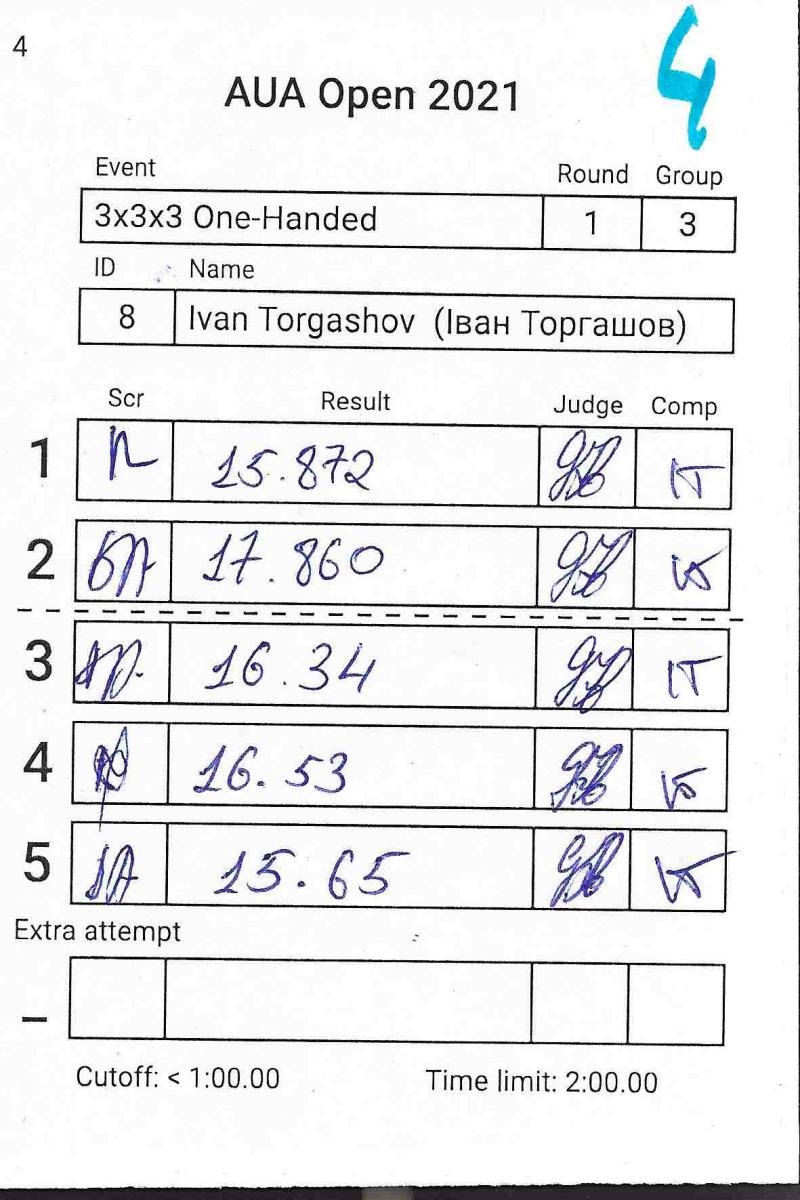 4
4
AUA Open 2021
Event Round Group
3x3x3 One-Handed 1 3
ID Name
8 Ivan Torgashov (Іван Торгашов)
Scr Result Judge Comp
1 15.872
2 17.860
3 16.34
4 16.53
5 15.65
Extra attempt
–
Cutoff: < 1:00.00 Time limit: 2:00.00